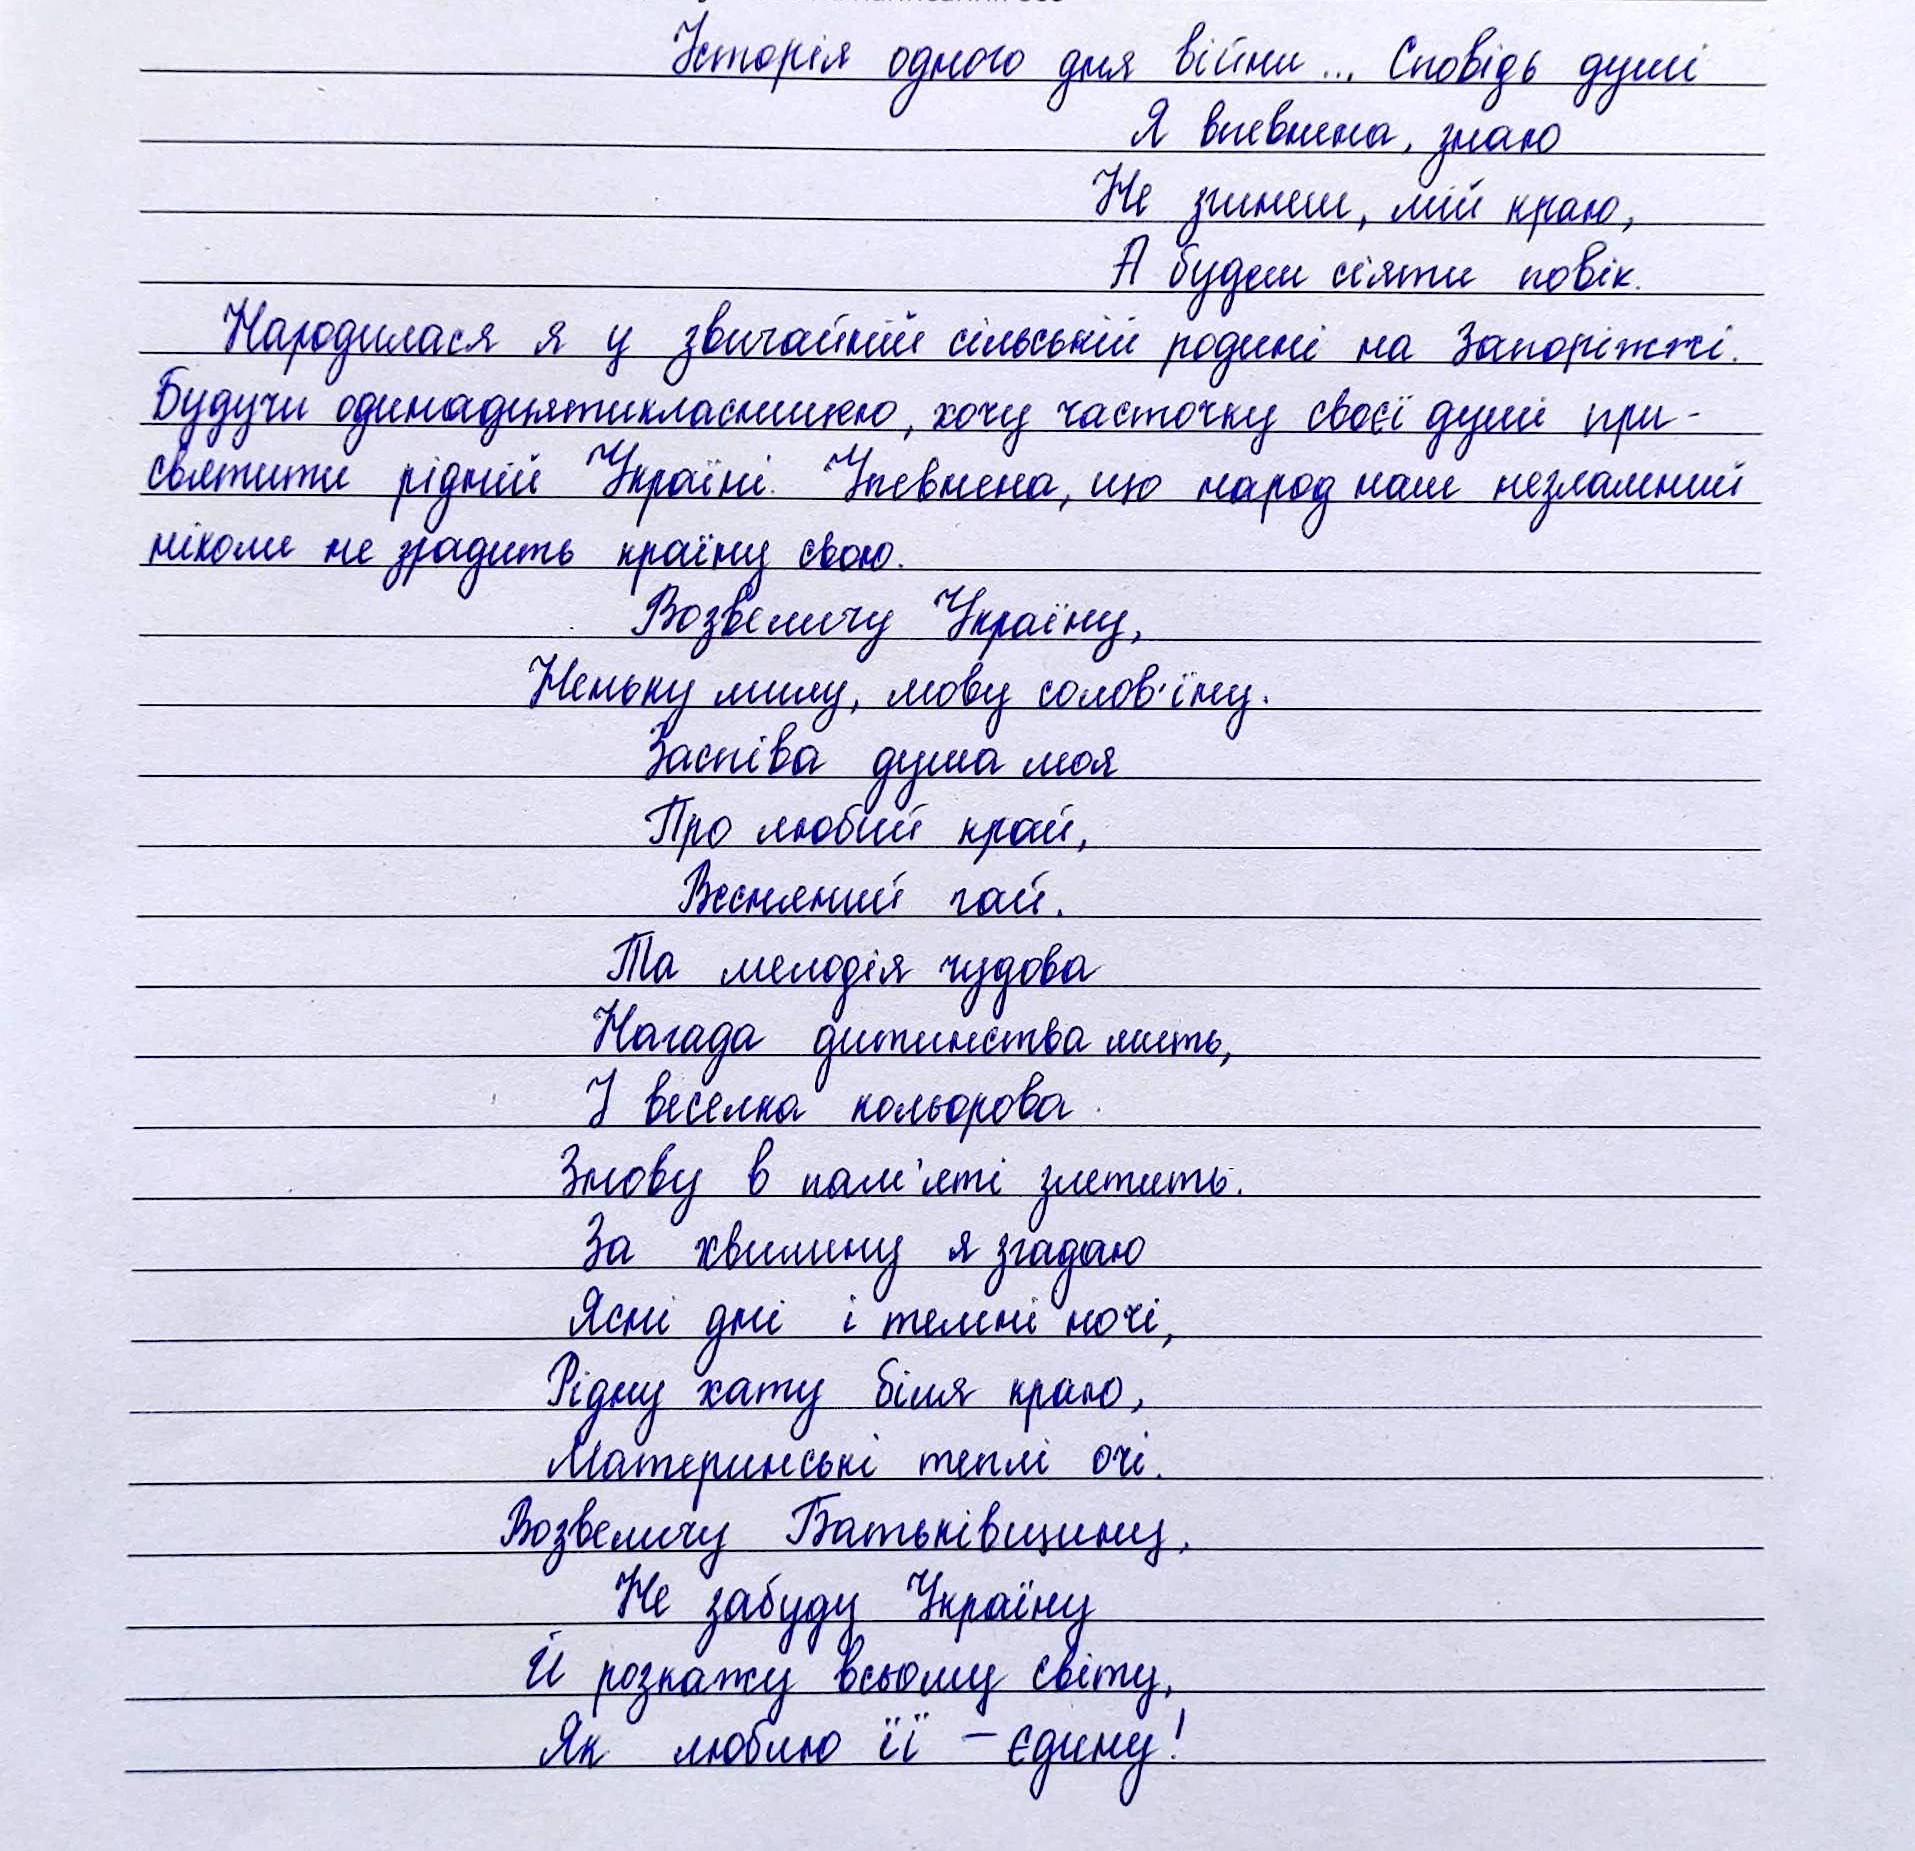 Історія одного дня війни... Сповідь душі
Я впевнена, знаю
Не згинеш, мій краю,
А будеш сіяти повік.
Народилася я у звичайній сільській родині на Запоріжжі.
Будучи одинадцятикласницею, хочу часточку своєї душі при-
святити рідній Україні. Упевнена, що народ наш незламний
ніколи не зрадить країну свою.
Возвеличу Україну,
Неньку милу, мову солов'їну.
Заспіва душа моя
Про любий край,
Весняний гай.
Та мелодія чудова
Нагада дитинства мить,
І веселка кольорова
Знову в пам'яті злетить.
За хвилину я згадаю
Ясні дні і темні ночі,
Рідну хату біля краю,
Материнські теплі очі.
Возвеличу Батьківщину,
Не забуду Україну
Й розкажу всьому світу,
Як люблю її – єдину!